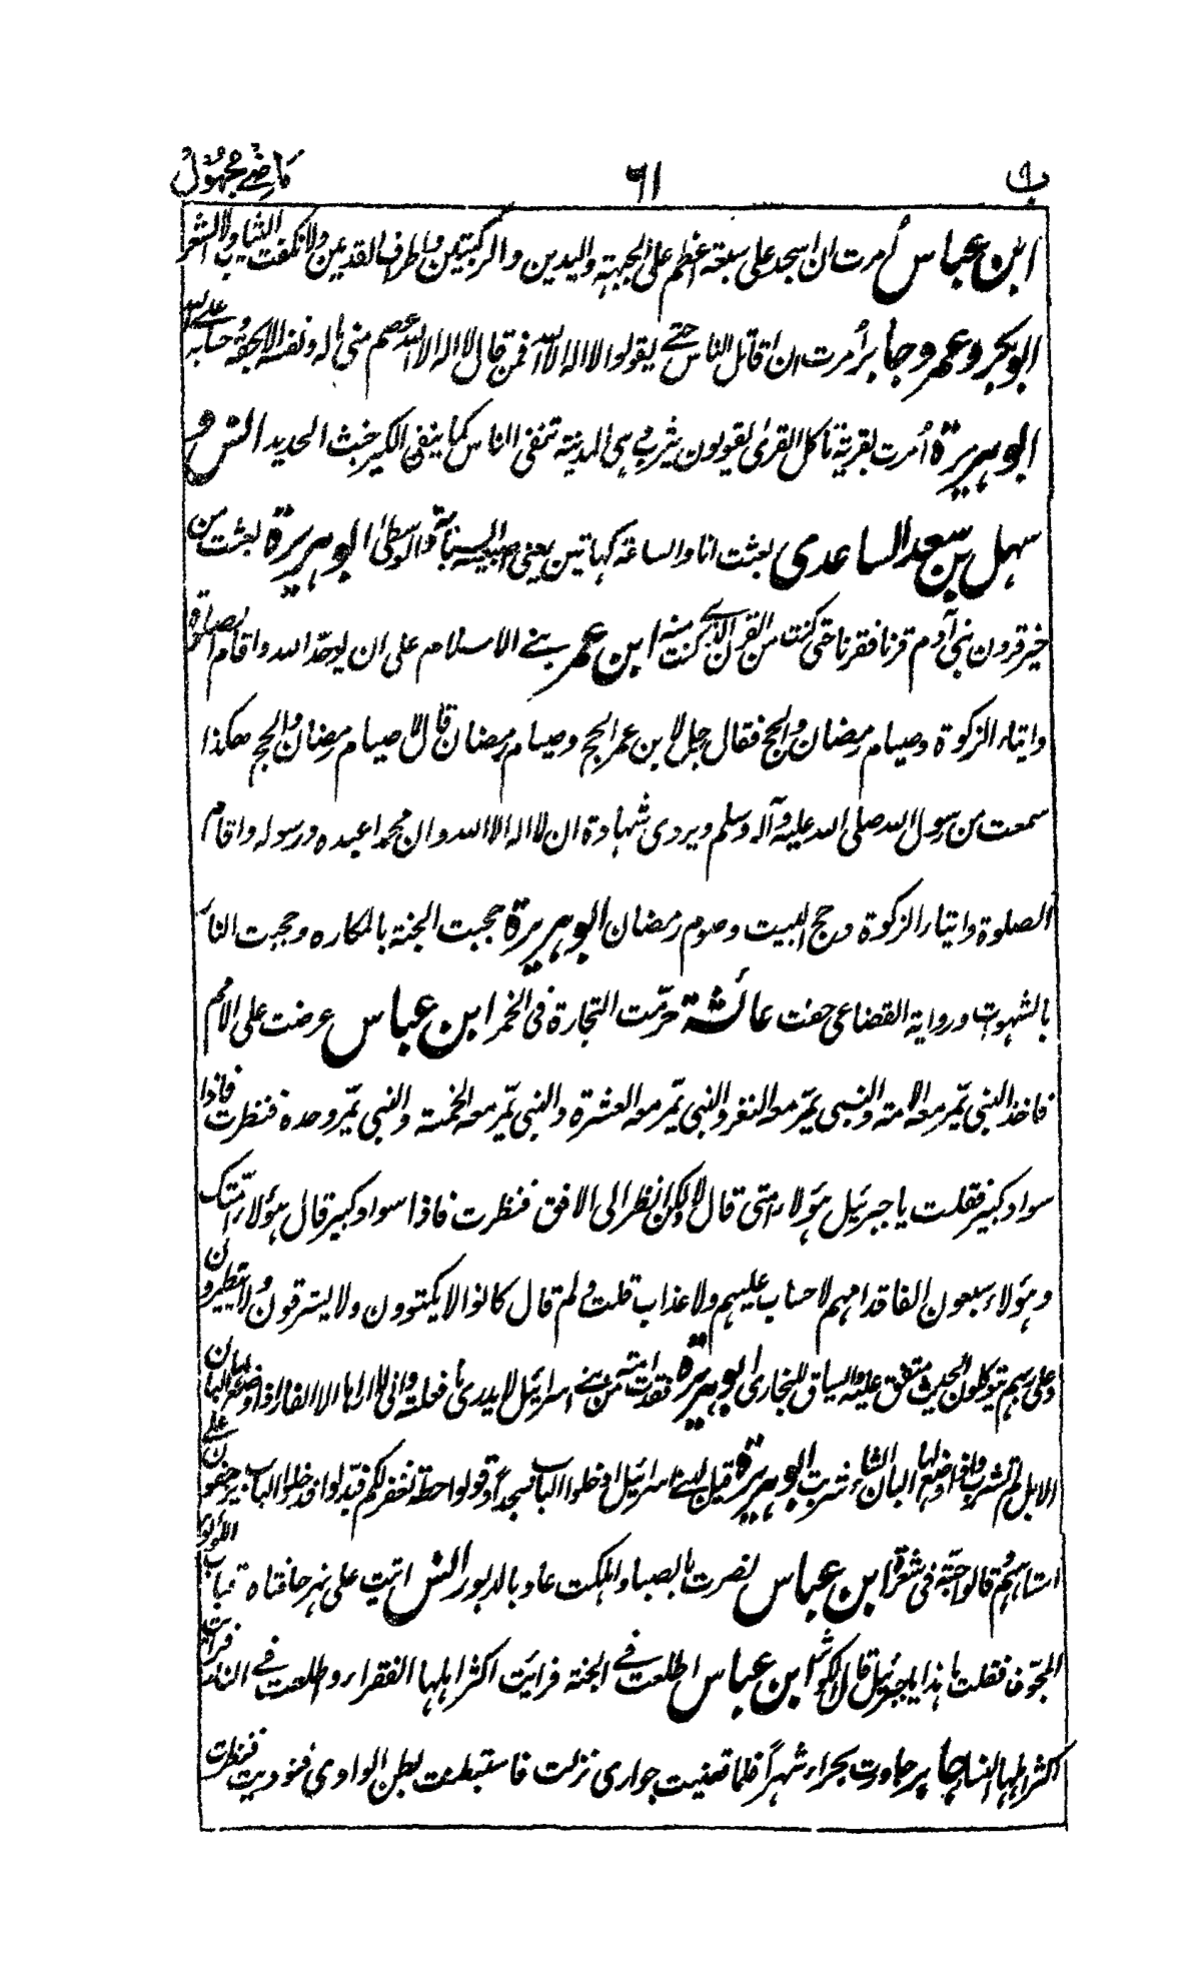 ب ٦١ ماضے مجہول
ابن عباس اُمرت ان اسجد على سبعة اعظم على الجبهة واليدين والركبتين واطراف القدمين ولا نكفت الثياب ولا الشعر
ابو بكر و عمر و جابر اُمرت ان اقاتل الناس حتے يقولوا لا اله الا الله فمن قال لا اله الا الله عصم منى ماله ونفسه الا بحقه وحسابه على الله
ابو ہریرة اُمرت بقرية تاكل القرىٰ يقولون يثرب وہى المدينة تنفى الناس كما ينفى الكير خبث الحديد انس و
سہل بن سعد الساعدى بعثت انا والساعة كہاتين يعنى اصبعيه السبابة والوسطىٰ ابو ہریرة بعثت من
خير قرون بنى آدم قرنا فقرنا حتى كنت من القرن الذى كنت منه ابن عمر بنے الاسلام على ان يوحّد الله واقام الصلوة
وايتاء الزكوة وصيام رمضان والحج فقال رجل لابن عمر الحج وصيام رمضان قال لا صيام رمضان والحج هكذا
سمعت من رسول الله صلى الله عليه وآله وسلم ويروى شهادة ان لا اله الا الله وان محمدا عبده ورسوله واقام
الصلوة وايتاء الزكوة وحج البيت وصوم رمضان ابو ہریرة حجبت الجنة بالمكاره وحجبت النار
بالشهوات ورواية القضاعى حفت عائشة حرّمت التجارة فى الخمر ابن عباس عرضت على الامم
فاخذ النبى يمّر معه الامة والنبى يمّر معه النفر والنبى يمّر معه العشرة والنبى يمّر معه الخمسة والنبى يمّر وحده فنظرت فاذا
سواد كبير فقلت يا جبرئيل ہؤلاء امتى قال لا ولكن انظر الى الافق فنظرت فاذا سواد كبير قال ہؤلاء امتك
وہؤلاء سبعون الفا قدامہم لا حساب عليہم ولا عذاب قلت ولم قال كانوا لا يكتوون ولا يسترقون ولا يتطيرون
وعلى ربہم يتوكلون الحديث متفق عليه والسياق للبخارى ابو ہریرة فقدت امة من بنے اسرائيل لا يدرى ما فعلت وانى لا اراہا الا الفار اذا وضع لہا البان
الابل لم تشرب واذا وضع لہا البان الشاء شربت ابو ہریرة قيل لبنے اسرائيل ادخلوا الباب سجداً وقولوا حطة نغفر لكم فبدلوا فدخلوا الباب يزحفون على
استاہہم وقالوا حبّة فى شعرة ابن عباس نصرت بالصبا واہلكت عاد بالدبور انس اتيت على نہر حافتاه قباب اللؤلؤ
المجوّف فقلت ما ہذا يا جبرئيل قال الكوثر ابن عباس اطلعت فے الجنة فرايت اكثر اہلہا الفقراء واطلعت فے النار فرايت
اكثر اہلہا النساء جابر جاورت بحراء شہراً فلما قضيت جوارى نزلت فاستبطنت بطن الوادى فنوديت فنظرت